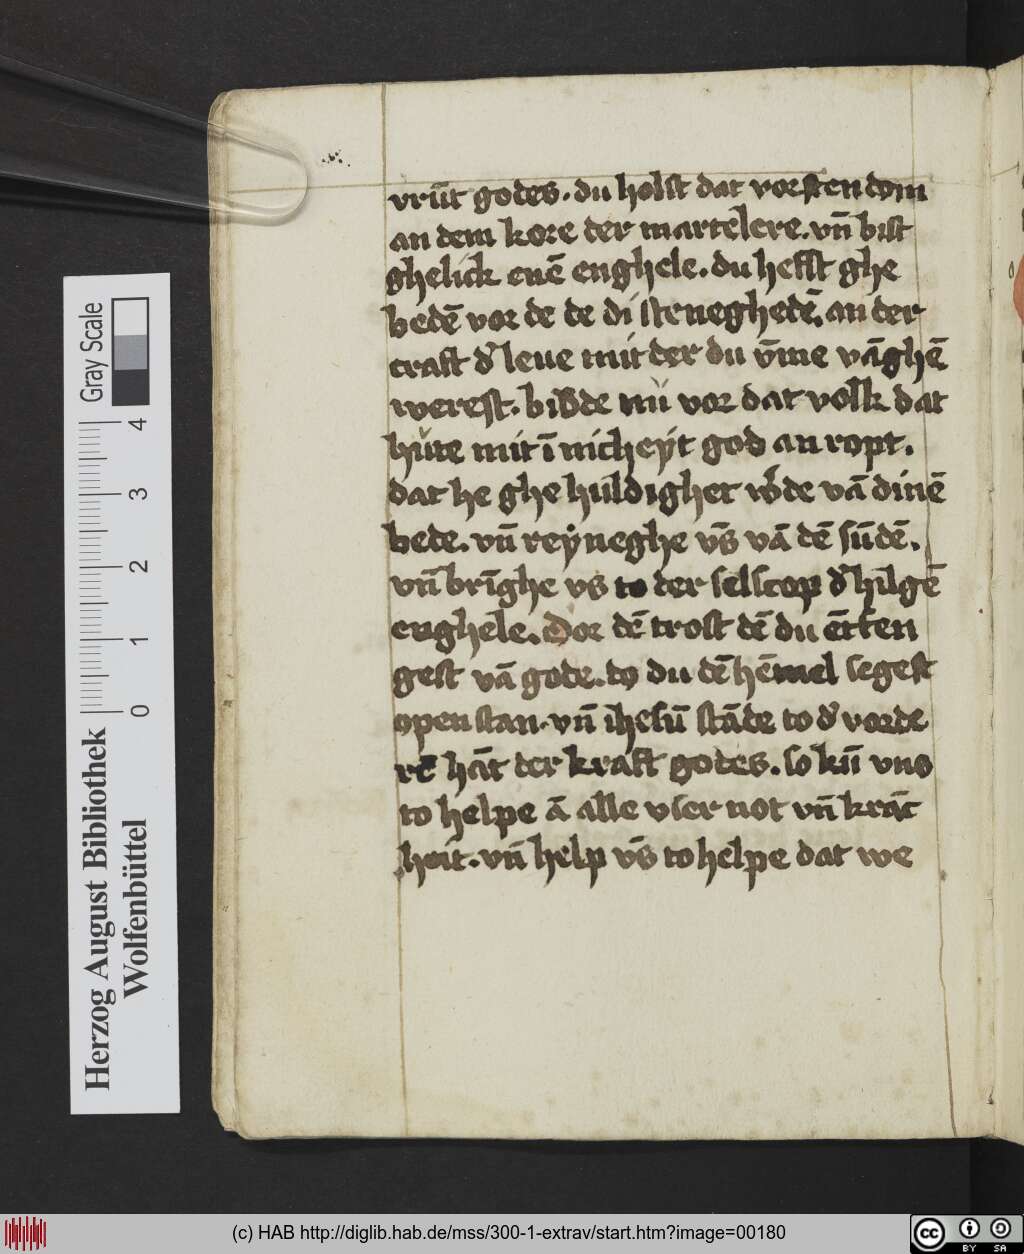 vrūt godes. du holst dat vorstendom
an dem kore der martelere. vn̄ bist
ghelick euē enghele. du hefst ghe
bedē vor de de di steneghedē. an der
craft d' leue mit der du v̄me vāghē
werest. bidde nu vor dat volk dat
hute mit ī nicheyt god an ropt.
dat he ghe huldighet w'de vā dinē
bede. vn̄ reyneghe vs̄ vā dē sūdē.
vn̄ brīghe vs to der selscop d' hilgē
enghele. Dor dē trost dē du ētfen
gest vā gode. do du dē hēmel segest
open stan. vn̄ ihesū stāde to d' vorde
rē hāt der kraft godes. so kū vns
to helpe ā alle vser not vn̄ krāc
heit. vn̄ help vs̄ to helpe dat we
Herzog August Bibliothek
Wolfenbüttel
0 1 2 3 4
Gray Scale
(c) HAB http://diglib.hab.de/mss/300-1-extrav/start.htm?image=00180
cc BY SA